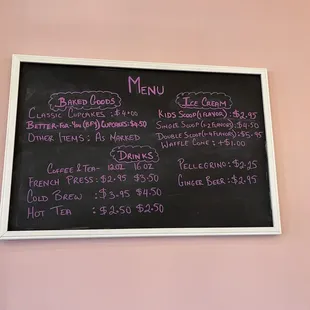 MENU
BAKED GOODS
CLASSIC CUPCAKES : $4.00
BETTER-FOR-YOU (BFY) CUPCAKES: $4.50
OTHER ITEMS : AS MARKED
ICE CREAM
KIDS SCOOP (1 FLAVOR) : $2.95
SINGLE SCOOP (1-2 FLAVORS) : $4.50
DOUBLE SCOOP (1-4 FLAVORS) : $5.95
WAFFLE CONE : +$1.00
DRINKS
COFFEE & TEA- 12OZ 16 OZ
FRENCH PRESS : $2.95 $3.50
COLD BREW : $3.95 $4.50
HOT TEA : $2.50 $2.50
PELLEGRINO : $2.25
GINGER BEER : $2.95